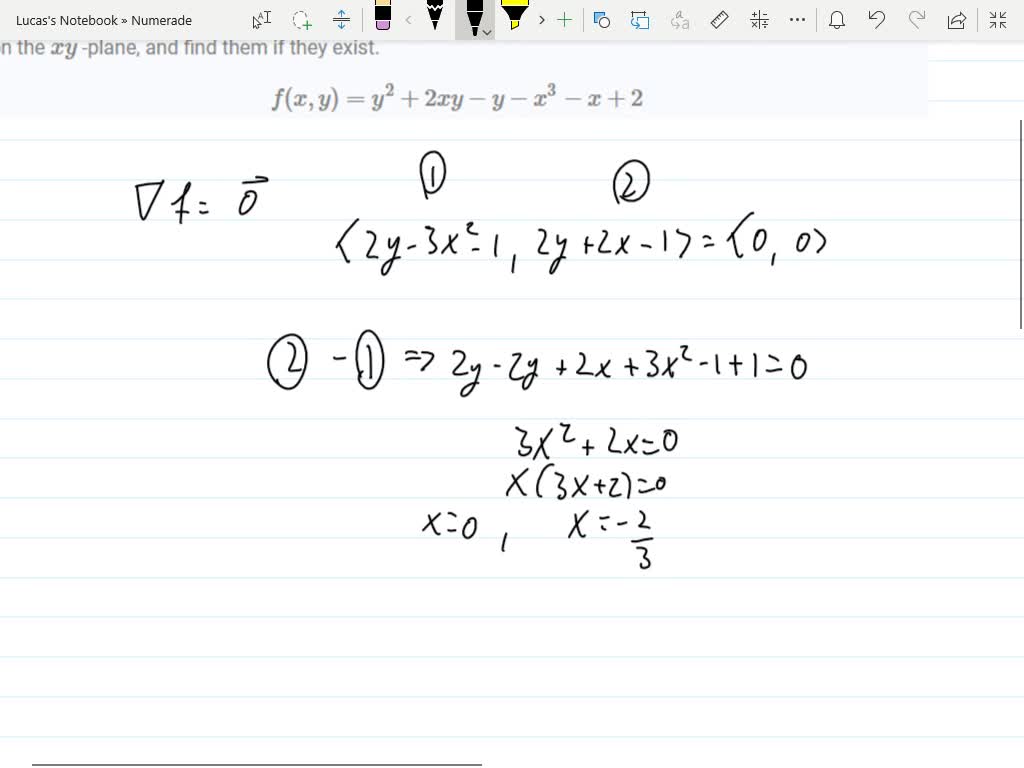 Lucas's Notebook » Numerade
n the xy -plane, and find them if they exist.
f(x, y) = y² + 2xy − y − x³ − x + 2
① ②
∇f = 0⃗
⟨2y - 3x² - 1, 2y + 2x - 1⟩ = ⟨0, 0⟩
② - ① ⇒ 2y - 2y + 2x + 3x² - 1 + 1 = 0
3x² + 2x = 0
x(3x+2) = 0
x = 0, x = -2/3